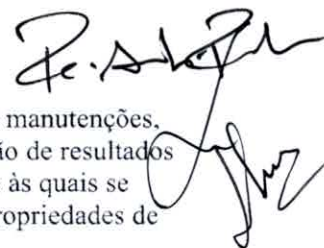 manutenções,
ão de resultados
às quais se
ropriedades de